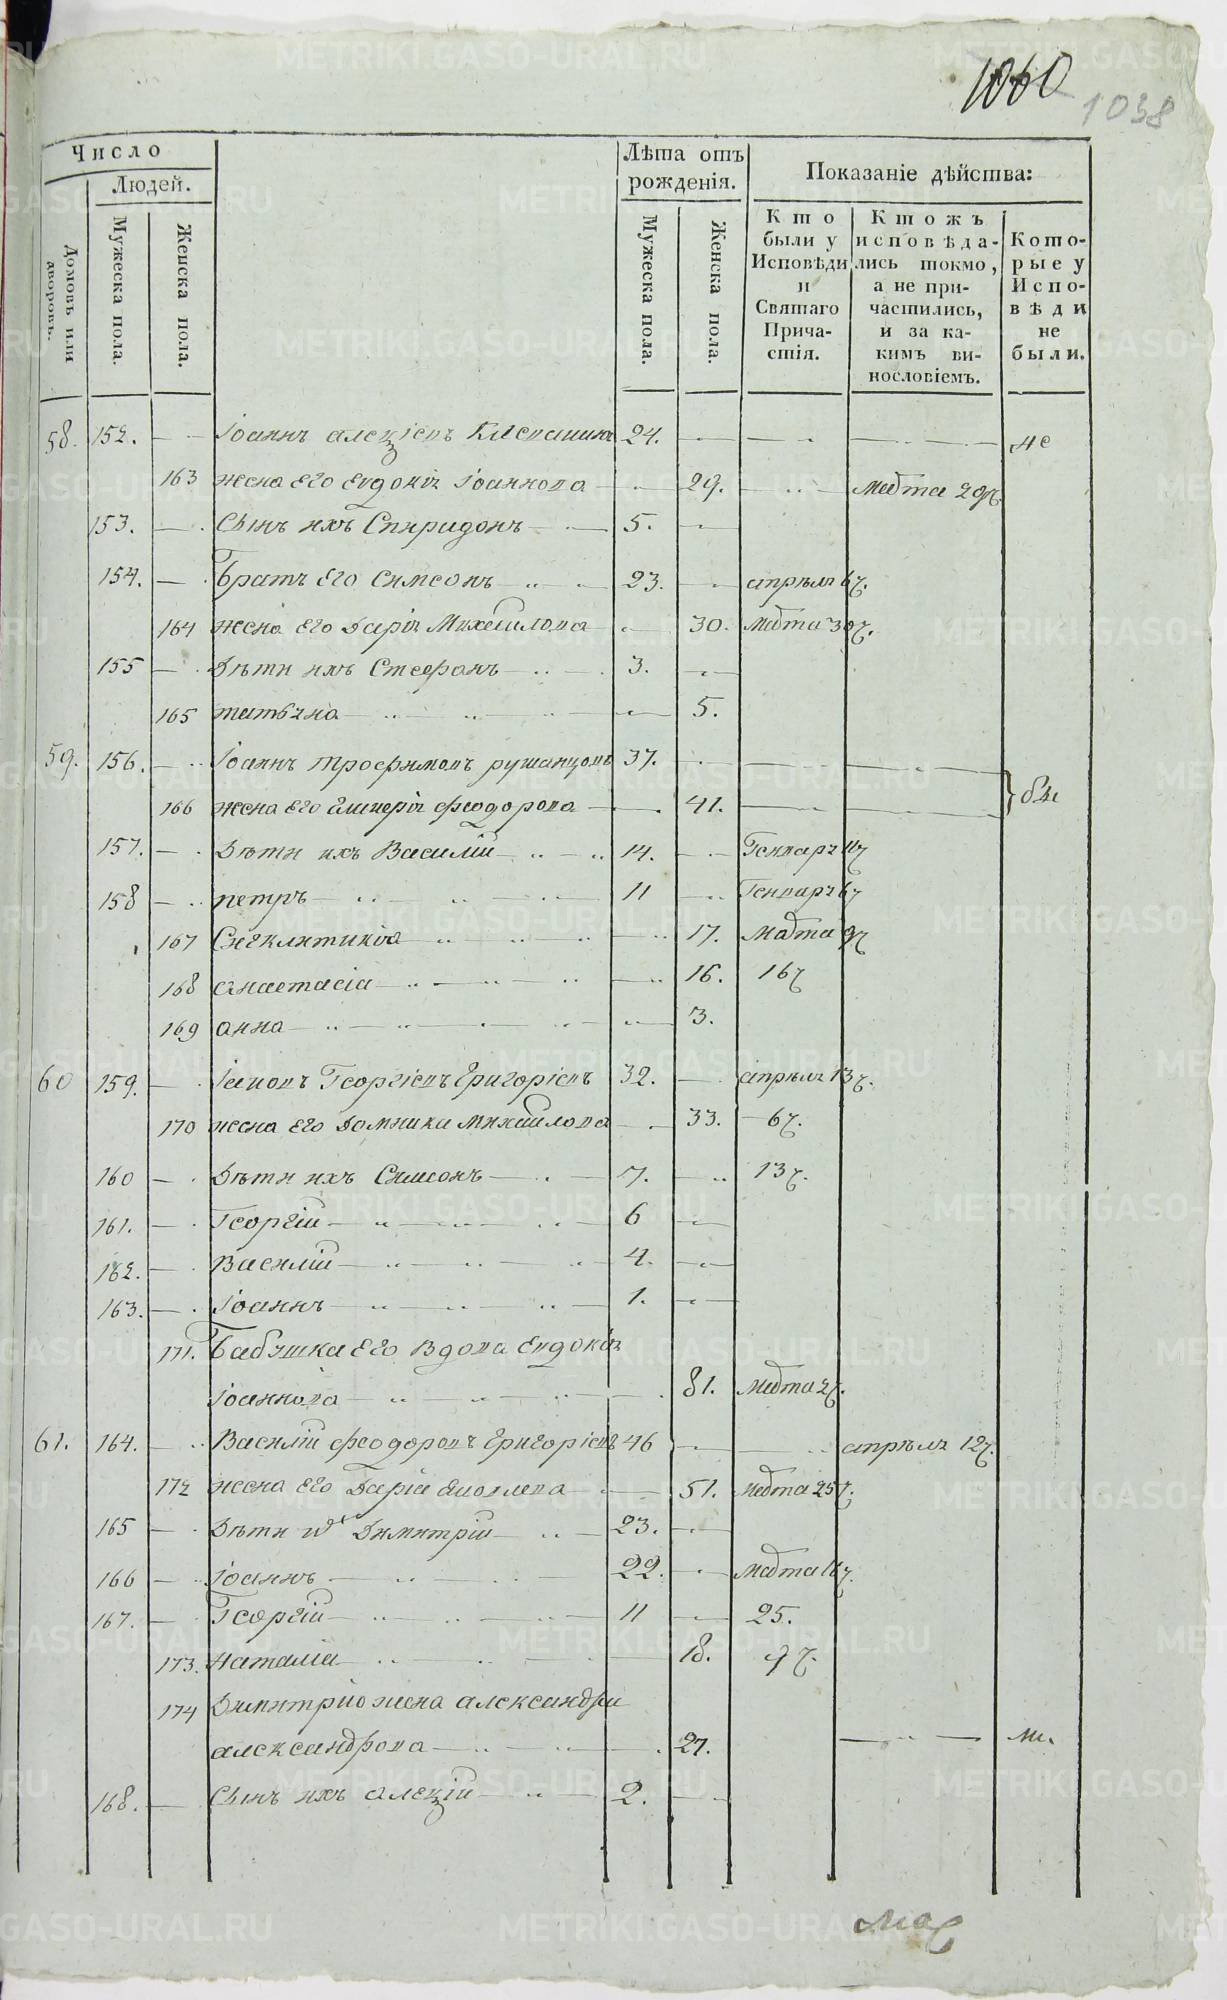 1060
1038
Число
Людей.
Домовъ или дворовъ.
Мужеска пола.
Женска пола.
Лѣта отъ рожденія.
Мужеска пола.
Женска пола.
Показаніе дѣйства:
Кто были у Исповѣди и Святаго Прича- стія.
Ктожъ исповѣда- лись токмо, а не при- частились, и за ка- кимъ ви- нословіемъ.
Кото- рые у Испо- вѣди не были.
58. 152. Іоаннъ алеѯіевъ 24. не
163 жена его евдокіа Іоаннова 29. марта 29ч.
153. Сынъ ихъ Спиридонъ 5.
154. Братъ его Симеонъ 23. апрѣля 6ч.
164 жена его Даріа Михайлова 30. марта 30ч.
155 Дѣти ихъ Стефанъ 3.
165 татіана 5.
59. 156. Іоаннъ трофимовъ рушанцовъ 37.
166 жена его феодорова 41.
157. Дѣти ихъ Василій 14. Генваря 11ч
158 петръ 11 Генваря 6ч
167 Сигклитикіа 17. марта 9ч
168 анастасіа 16. 16ч
169 анна 3.
60 159. Іаковъ Георгіевъ Григоріевъ 32. апрѣля 13ч.
170 жена его Домника михайлова 33. 6ч.
160 Дѣти ихъ Симеонъ 7. 13ч.
161. Георгій 6
162. Василій 4.
163. Іоаннъ 1.
171. Бабушка его вдова Евдокіа
Іоаннова 81. марта 2ч.
61. 164. Василій феодоровъ Григоріевъ 46 апрѣля 12ч.
172 жена его Даріа Яковлева 51. марта 25ч.
165 Дѣти ихъ Димитрій 23.
166 Іоаннъ 22. марта 16ч.
167. Георгій 11 25.
173. Наталіа 18. 9ч.
174 Димитріо жена александра
александрова 27.
168. Сынъ ихъ алеѯій 2.
METRIKI.GASO-URAL.RU